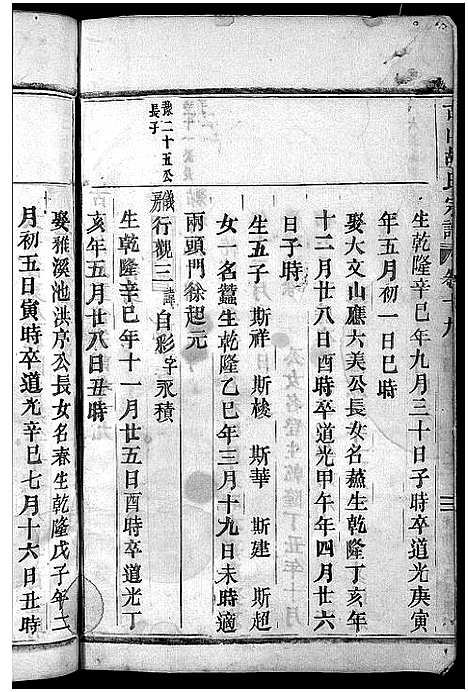 胡氏宗譜
卷十九
三
生乾隆辛巳年九月三十日子時卒道光庚寅
年五月初一日巳時
娶大文山應六美公長女名蕬生乾隆丁亥年
十二月廿八日酉時卒道光甲午年四月廿六
日子時
生五子 斯祥 斯梭 斯華 斯建 斯超
女一名蠶生乾隆乙巳年三月十九日未時適
兩頭門徐起元
豫二十五公
長子
儀房行觀三諱自彩字永積
生乾隆辛巳年十一月廿五日酉時卒道光丁
亥年五月廿八日丑時
娶雅溪池洪序公長女名春生乾隆戊子年二
月初五日寅時卒道光辛巳七月十六日丑時